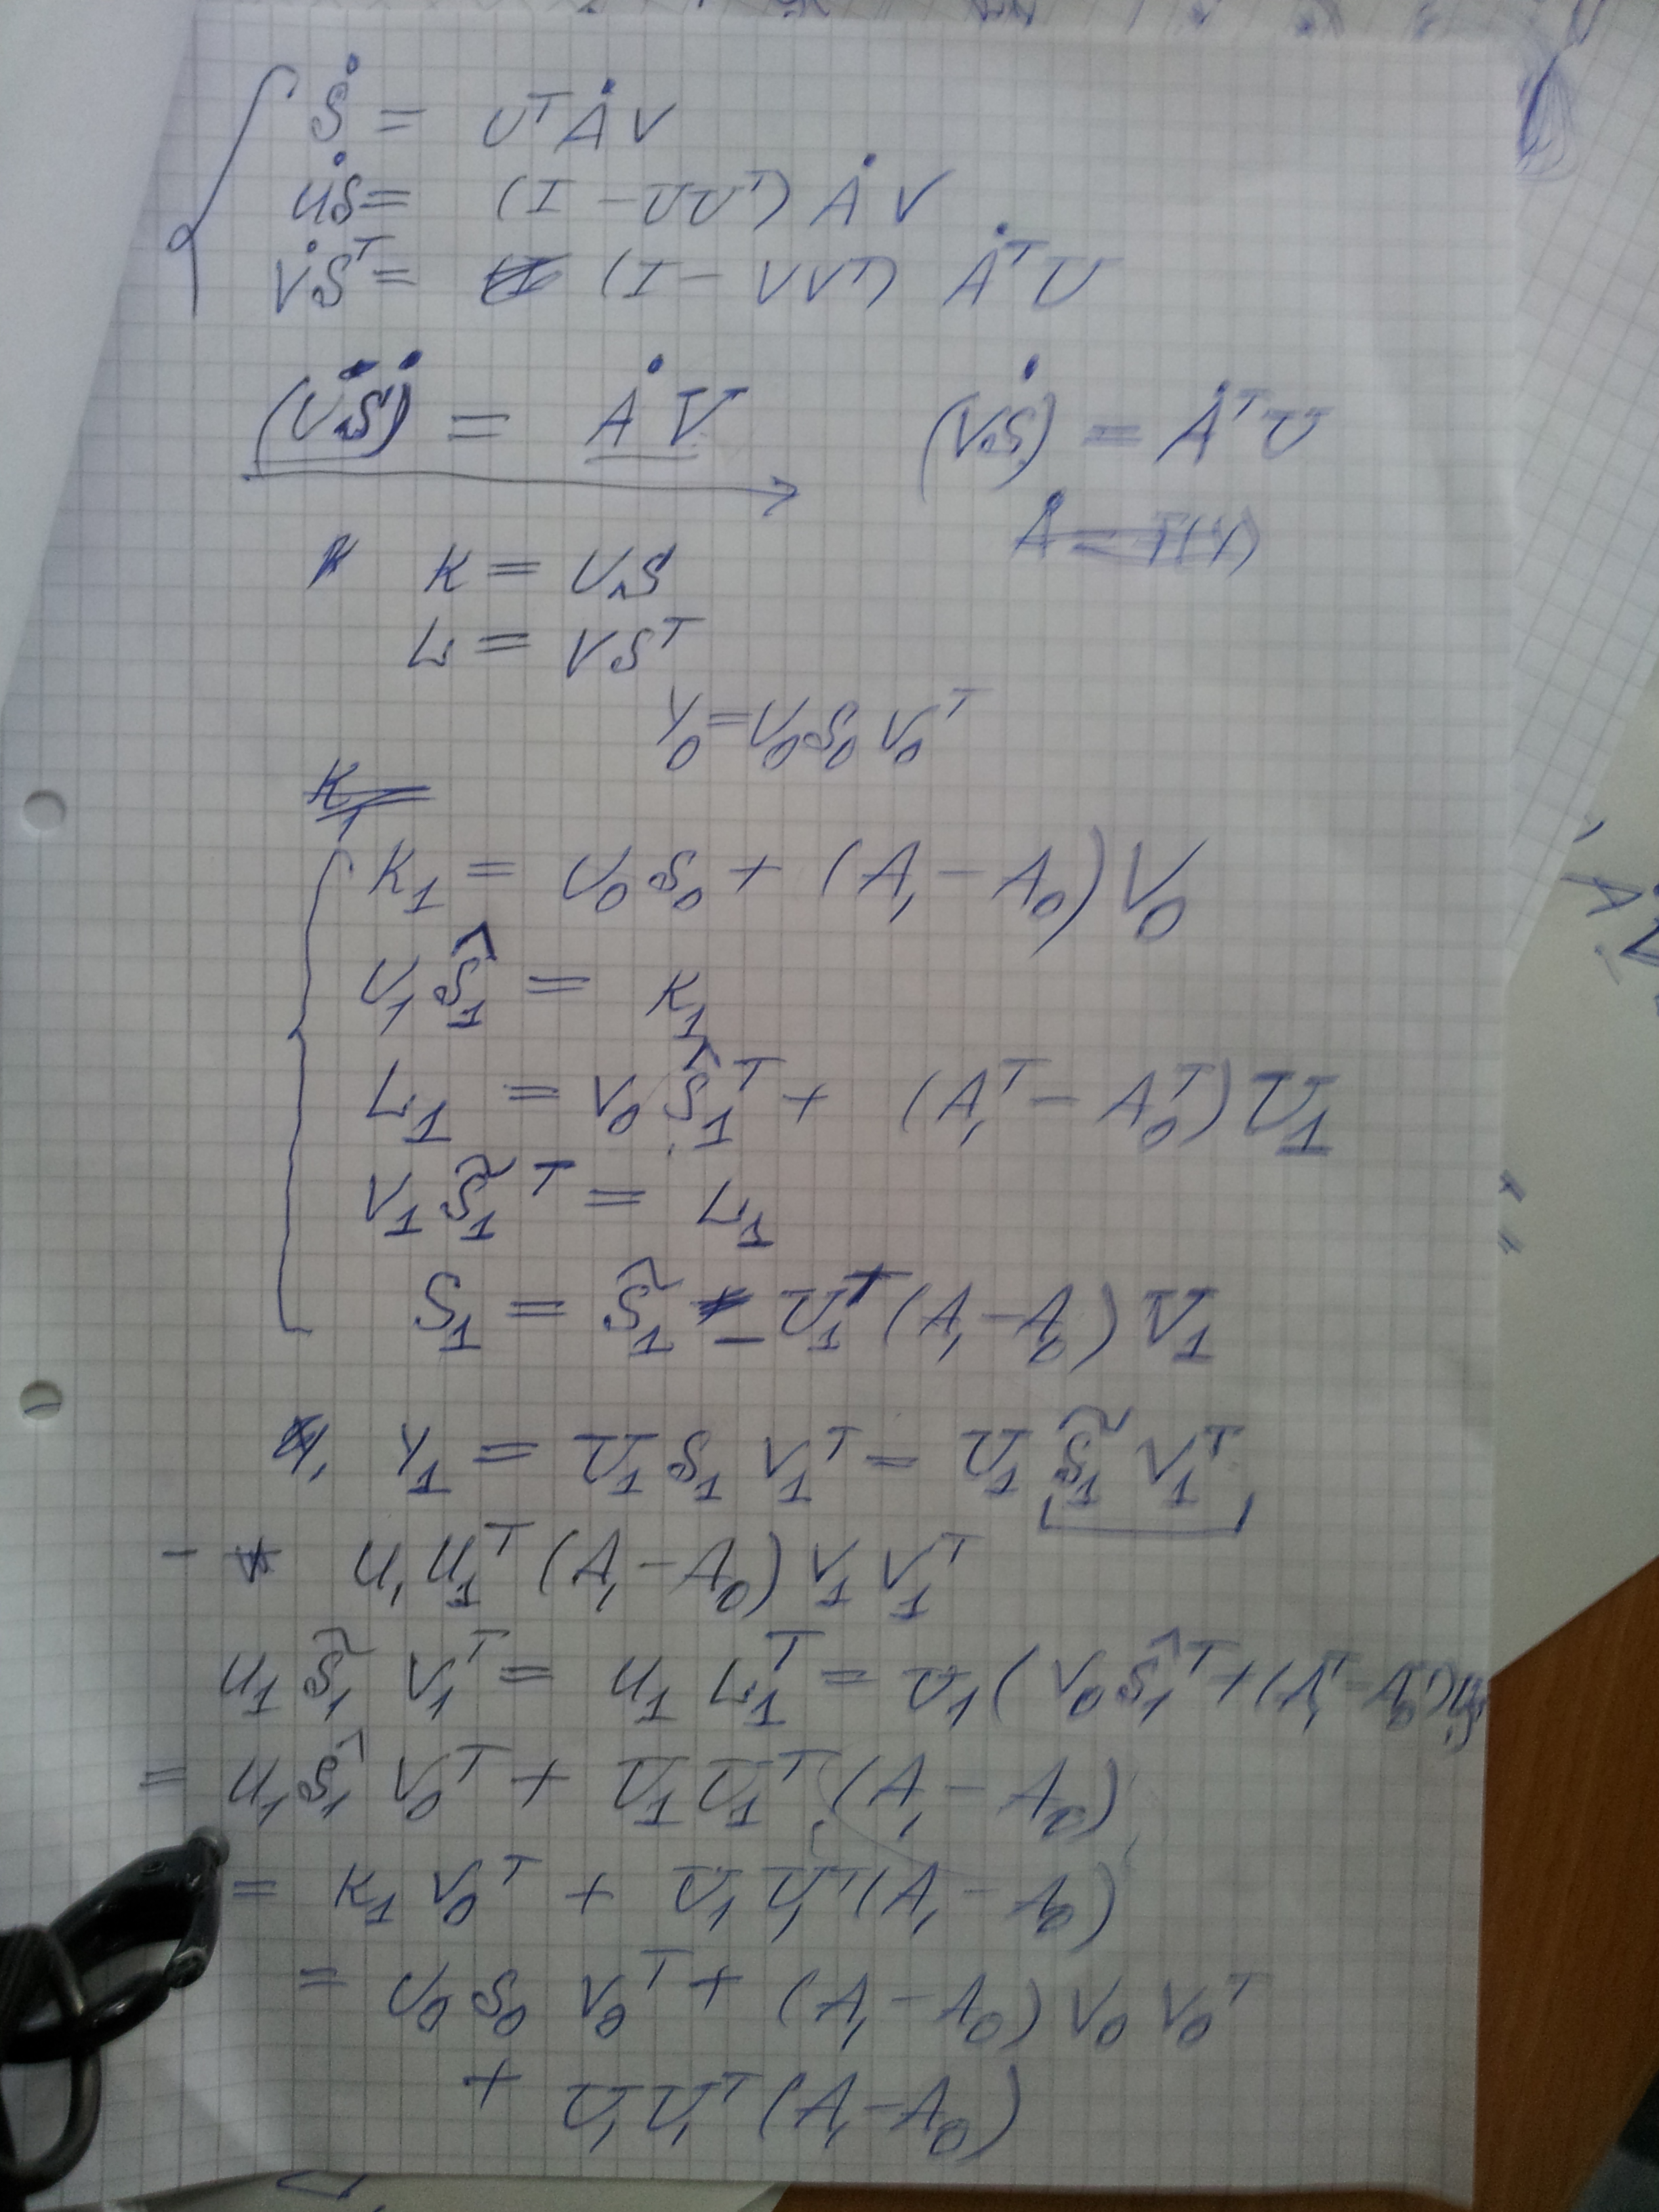 Ṡ = UᵀȦV
U̇S = (I - UUᵀ) ȦV
V̇Sᵀ = (I - VVᵀ) ȦᵀU
(US)˙ = ȦV (VS)˙ = ȦᵀU
K = US
L = VSᵀ
Y₀ = U₀S₀V₀ᵀ
K₁ =
K₁ = U₀S₀ + (A₁ - A₀)V₀
U₁Ŝ₁ = K₁
L₁ = V₀Ŝ₁ᵀ + (A₁ᵀ - A₀ᵀ)U₁
V₁S̃₁ᵀ = L₁
S₁ = S̃₁ - U₁ᵀ(A₁ - A₀)V₁
Y₁ = U₁S₁V₁ᵀ = U₁S̃₁V₁ᵀ
- U₁U₁ᵀ(A₁ - A₀)V₁V₁ᵀ
U₁S̃₁V₁ᵀ = U₁L₁ᵀ = U₁(V₀Ŝ₁ᵀ + (A₁ᵀ - A₀ᵀ)U₁
= U₁Ŝ₁V₀ᵀ + U₁U₁ᵀ(A₁ - A₀)
= K₁V₀ᵀ + U₁U₁ᵀ(A₁ - A₀)
= U₀S₀V₀ᵀ + (A₁ - A₀)V₀V₀ᵀ
+ U₁U₁ᵀ(A₁ - A₀)